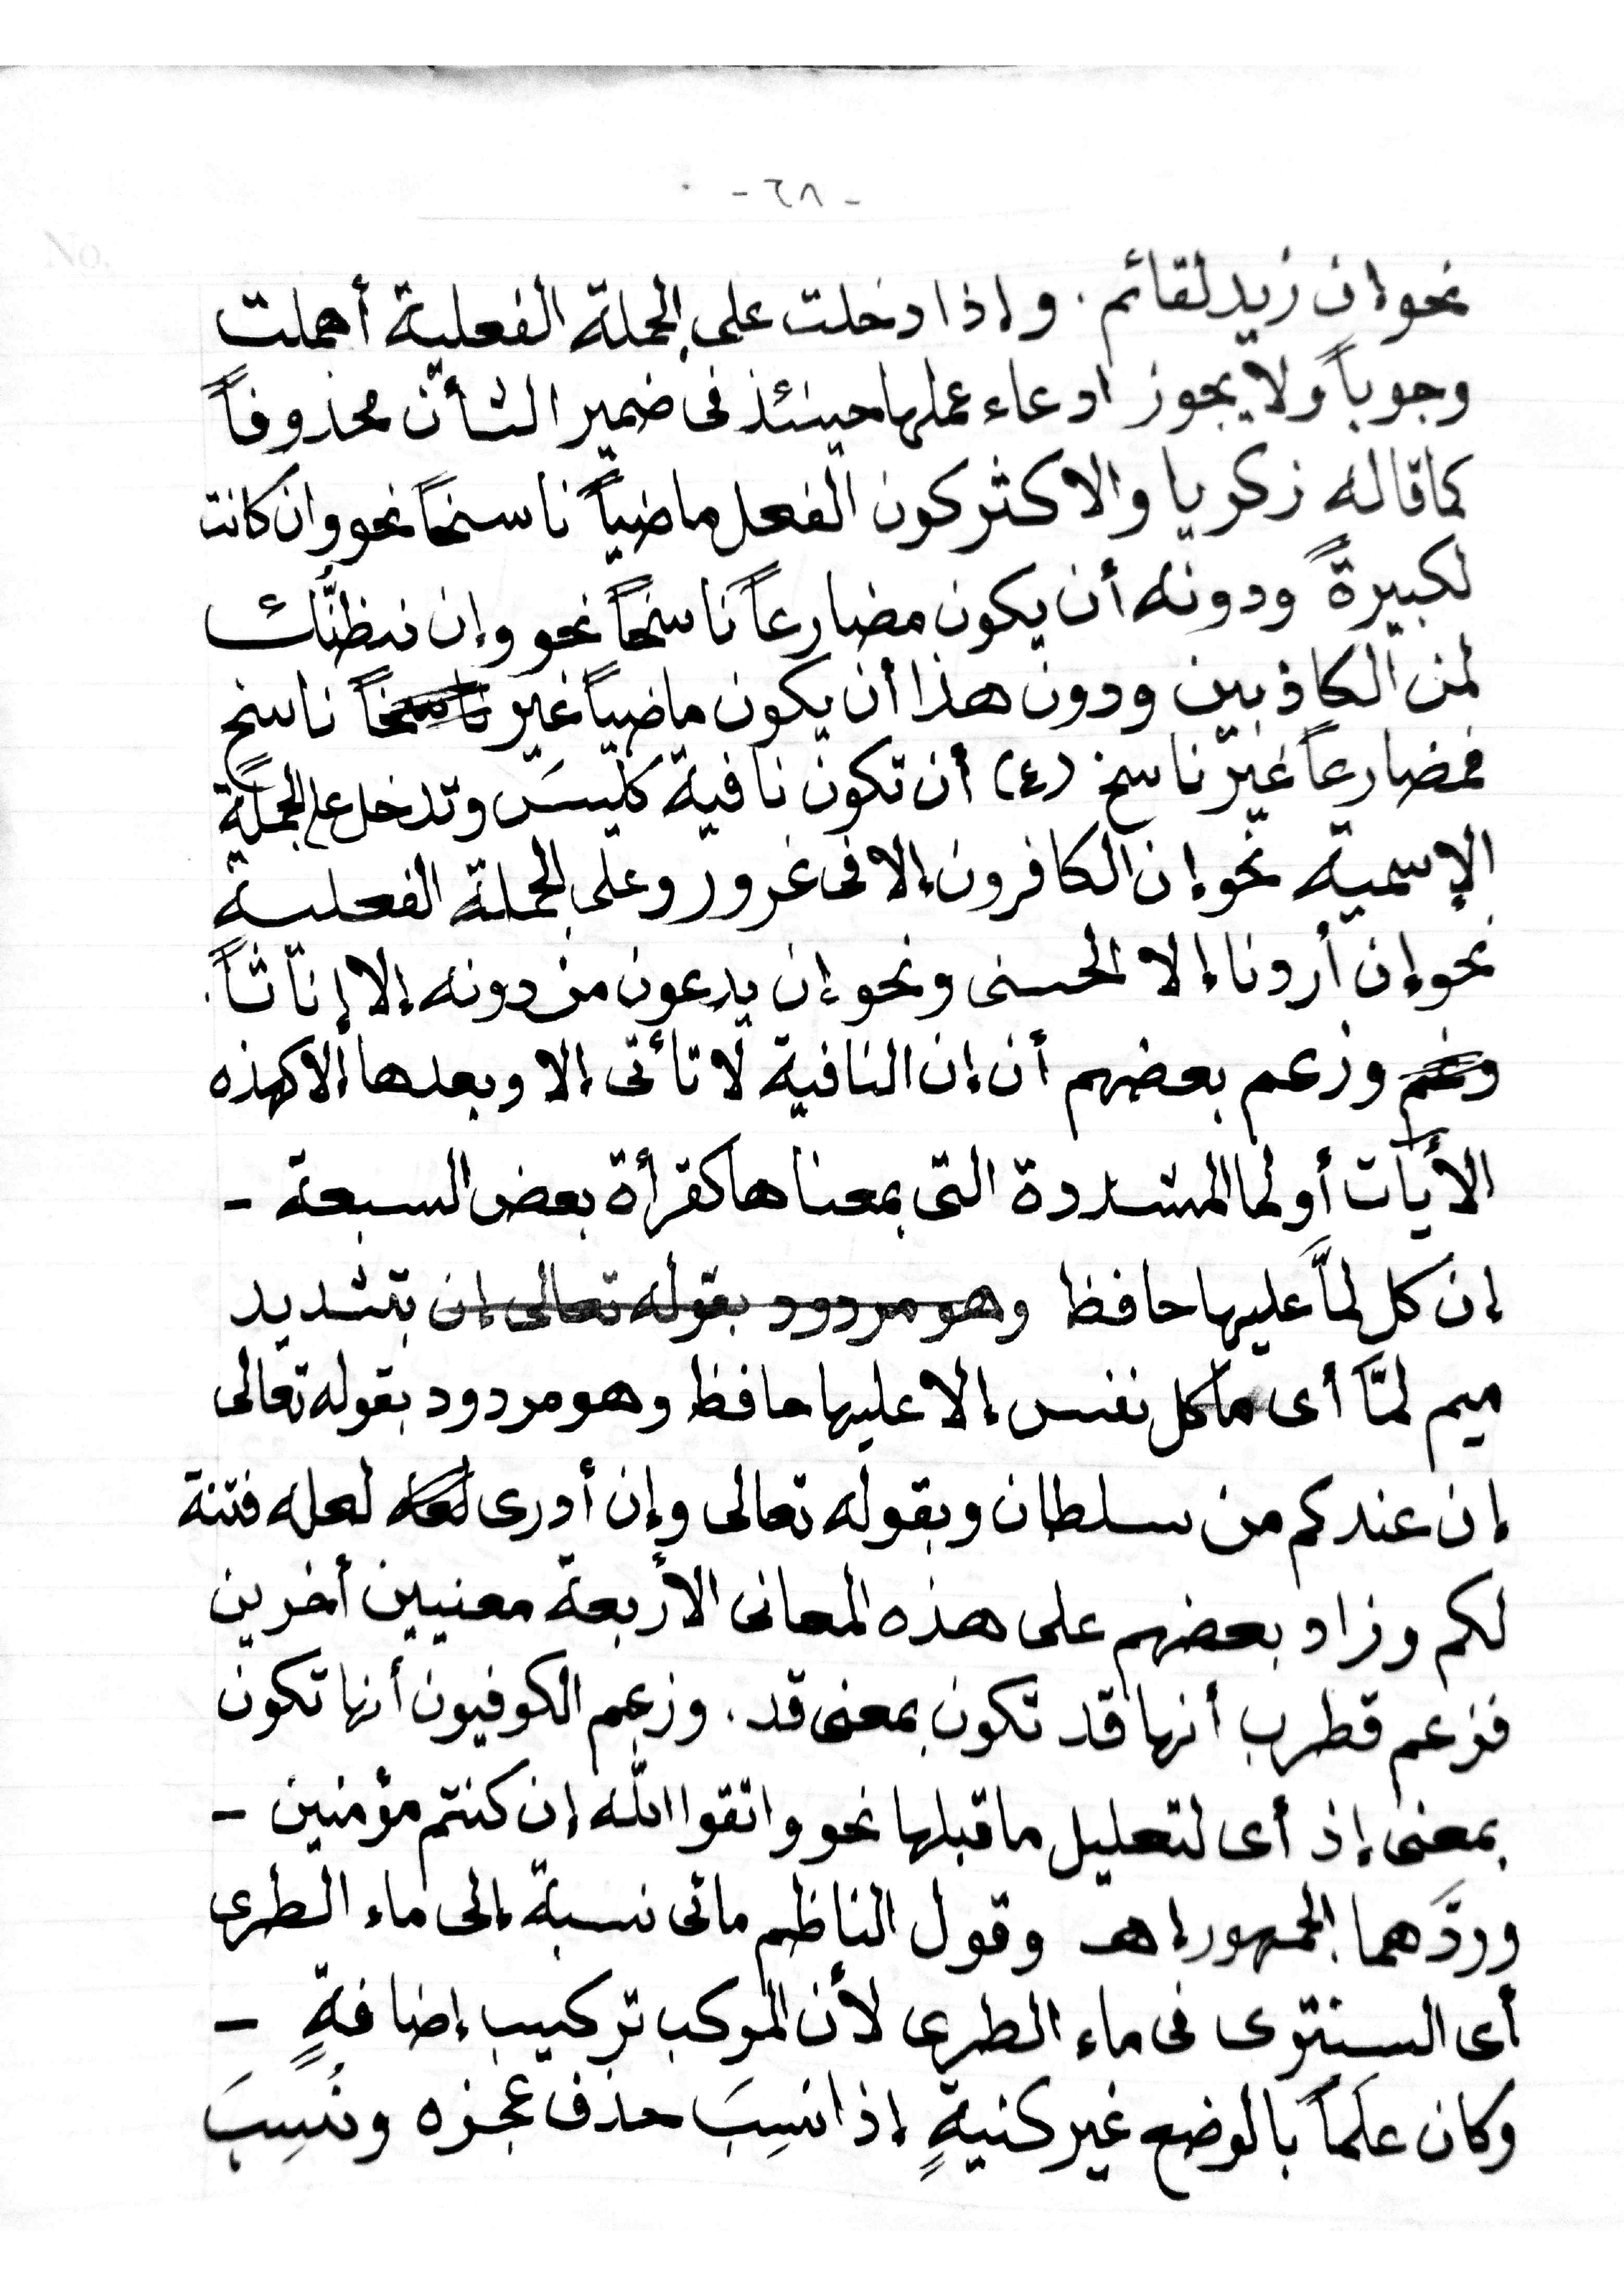 - ٦٨ -
No.
نحو إن زيد لقائم . وإذا دخلت على الجملة الفعلية أهملت
وجوباً ولا يجوز ادعاء عملها حينئذ فى ضمير الشأن محذوفاً
كما قاله زكريا والاكثر كون الفعل ماضياً ناسخاً نحو وان كانت
لكبيرةً ودونه أن يكون مضارعاً ناسخاً نحو وإن نظنُّك
لمن الكاذبين ودون هذا أن يكون ماضياً غير ناسخاً ناسخ
فمضارعاً غير ناسخ (٤) أن تكون نافية كليسَ وتدخل على الجملة
الإسمية نحو إن الكافرون إلا فى غرور وعلى الجملة الفعلية
نحو إن أردنا إلا الحسنى ونحو إن يدعون من دونه إلا إناثاً.
وزعم بعضهم أن إن النافية لا تأتى إلا وبعدها إلا كهذه
الأيات أو لما المشددة التى بمعناها كقرأة بعض السبعة -
إن كل لمَّا عليها حافظ وهو مردود بقوله تعالى إن بتشديد
ميم لمَّا أى ما كل نفس إلا عليها حافظ وهو مردود بقوله تعالى
إن عندكم من سلطان وبقوله تعالى وإن أدرى لعله لعله فتنة
لكم وزاد بعضهم على هذه المعانى الأربعة معنيين أخرين
فزعم قطرب أنها قد تكون بمعنى قد . وزعم الكوفيون أنها تكون
بمعنى إذ أى لتعليل ما قبلها نحو واتقوا اللّه إن كنتم مؤمنين -
وردَّهما الجمهور إهـ وقول الناظم مائى نسبة إلى ماء الطرى
أى السنترى فى ماء الطرى لأن المركب تركيب إضافةٍ -
وكان علَماً بالوضع غير كنيةٍ إذا نسِبَ حذف عجزه ونُسِبَ